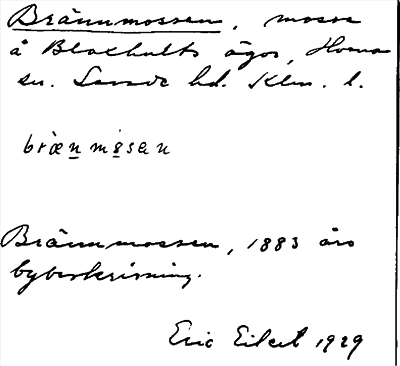 Brännmossen, mosse
å Blexhults ägor, Hovma
sn. Sunde hd. Klm. l.
bræn mɵsen
Brännmossen, 1883 års
bybeskrivning.
Eric Eilert 1929